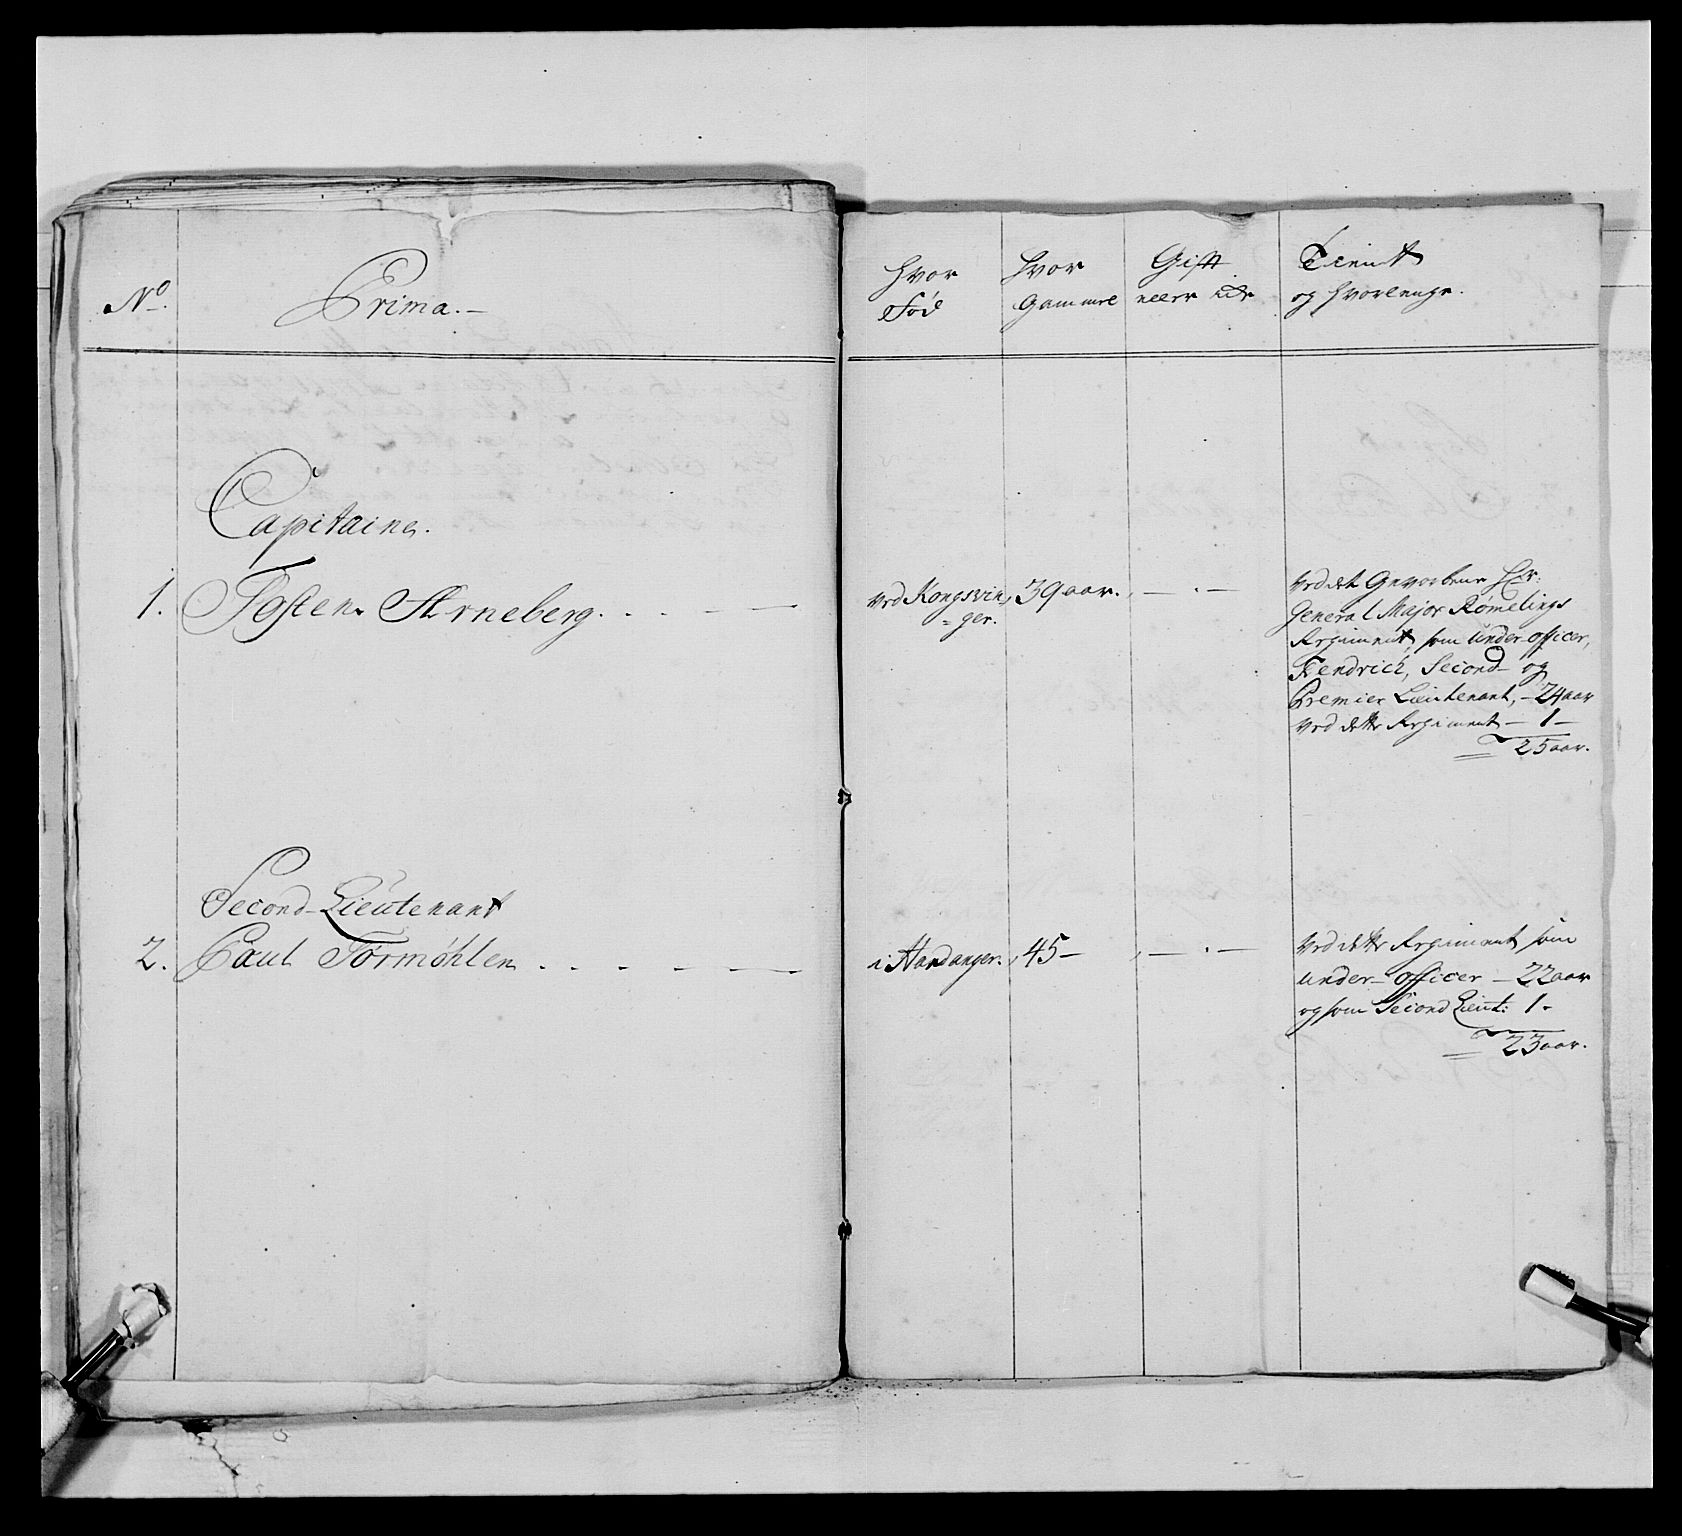 No.
Prima.
Hvor
Fød
Hvor
Gammel
Gift
eller Ude
Tient
og hvorlenge.
Capitaine.
1. Tosten Arneberg.
ved Kongsvin
=ger.
39 aar.
ved det Gevorbene Hr:
General Major Rømelings
Regiment, som under-officer,
Fendrich, Second- og
Premier Lieutenant, - 24 aar
ved dette Regiment - 1 -
25 aar.
Second-Lieutenant
2. Paul Tormøhlen
i Hardanger.
45 -
ved dette Regiment som
under-officer - 22 aar
og som Second Lieut: 1 -
23 aar.